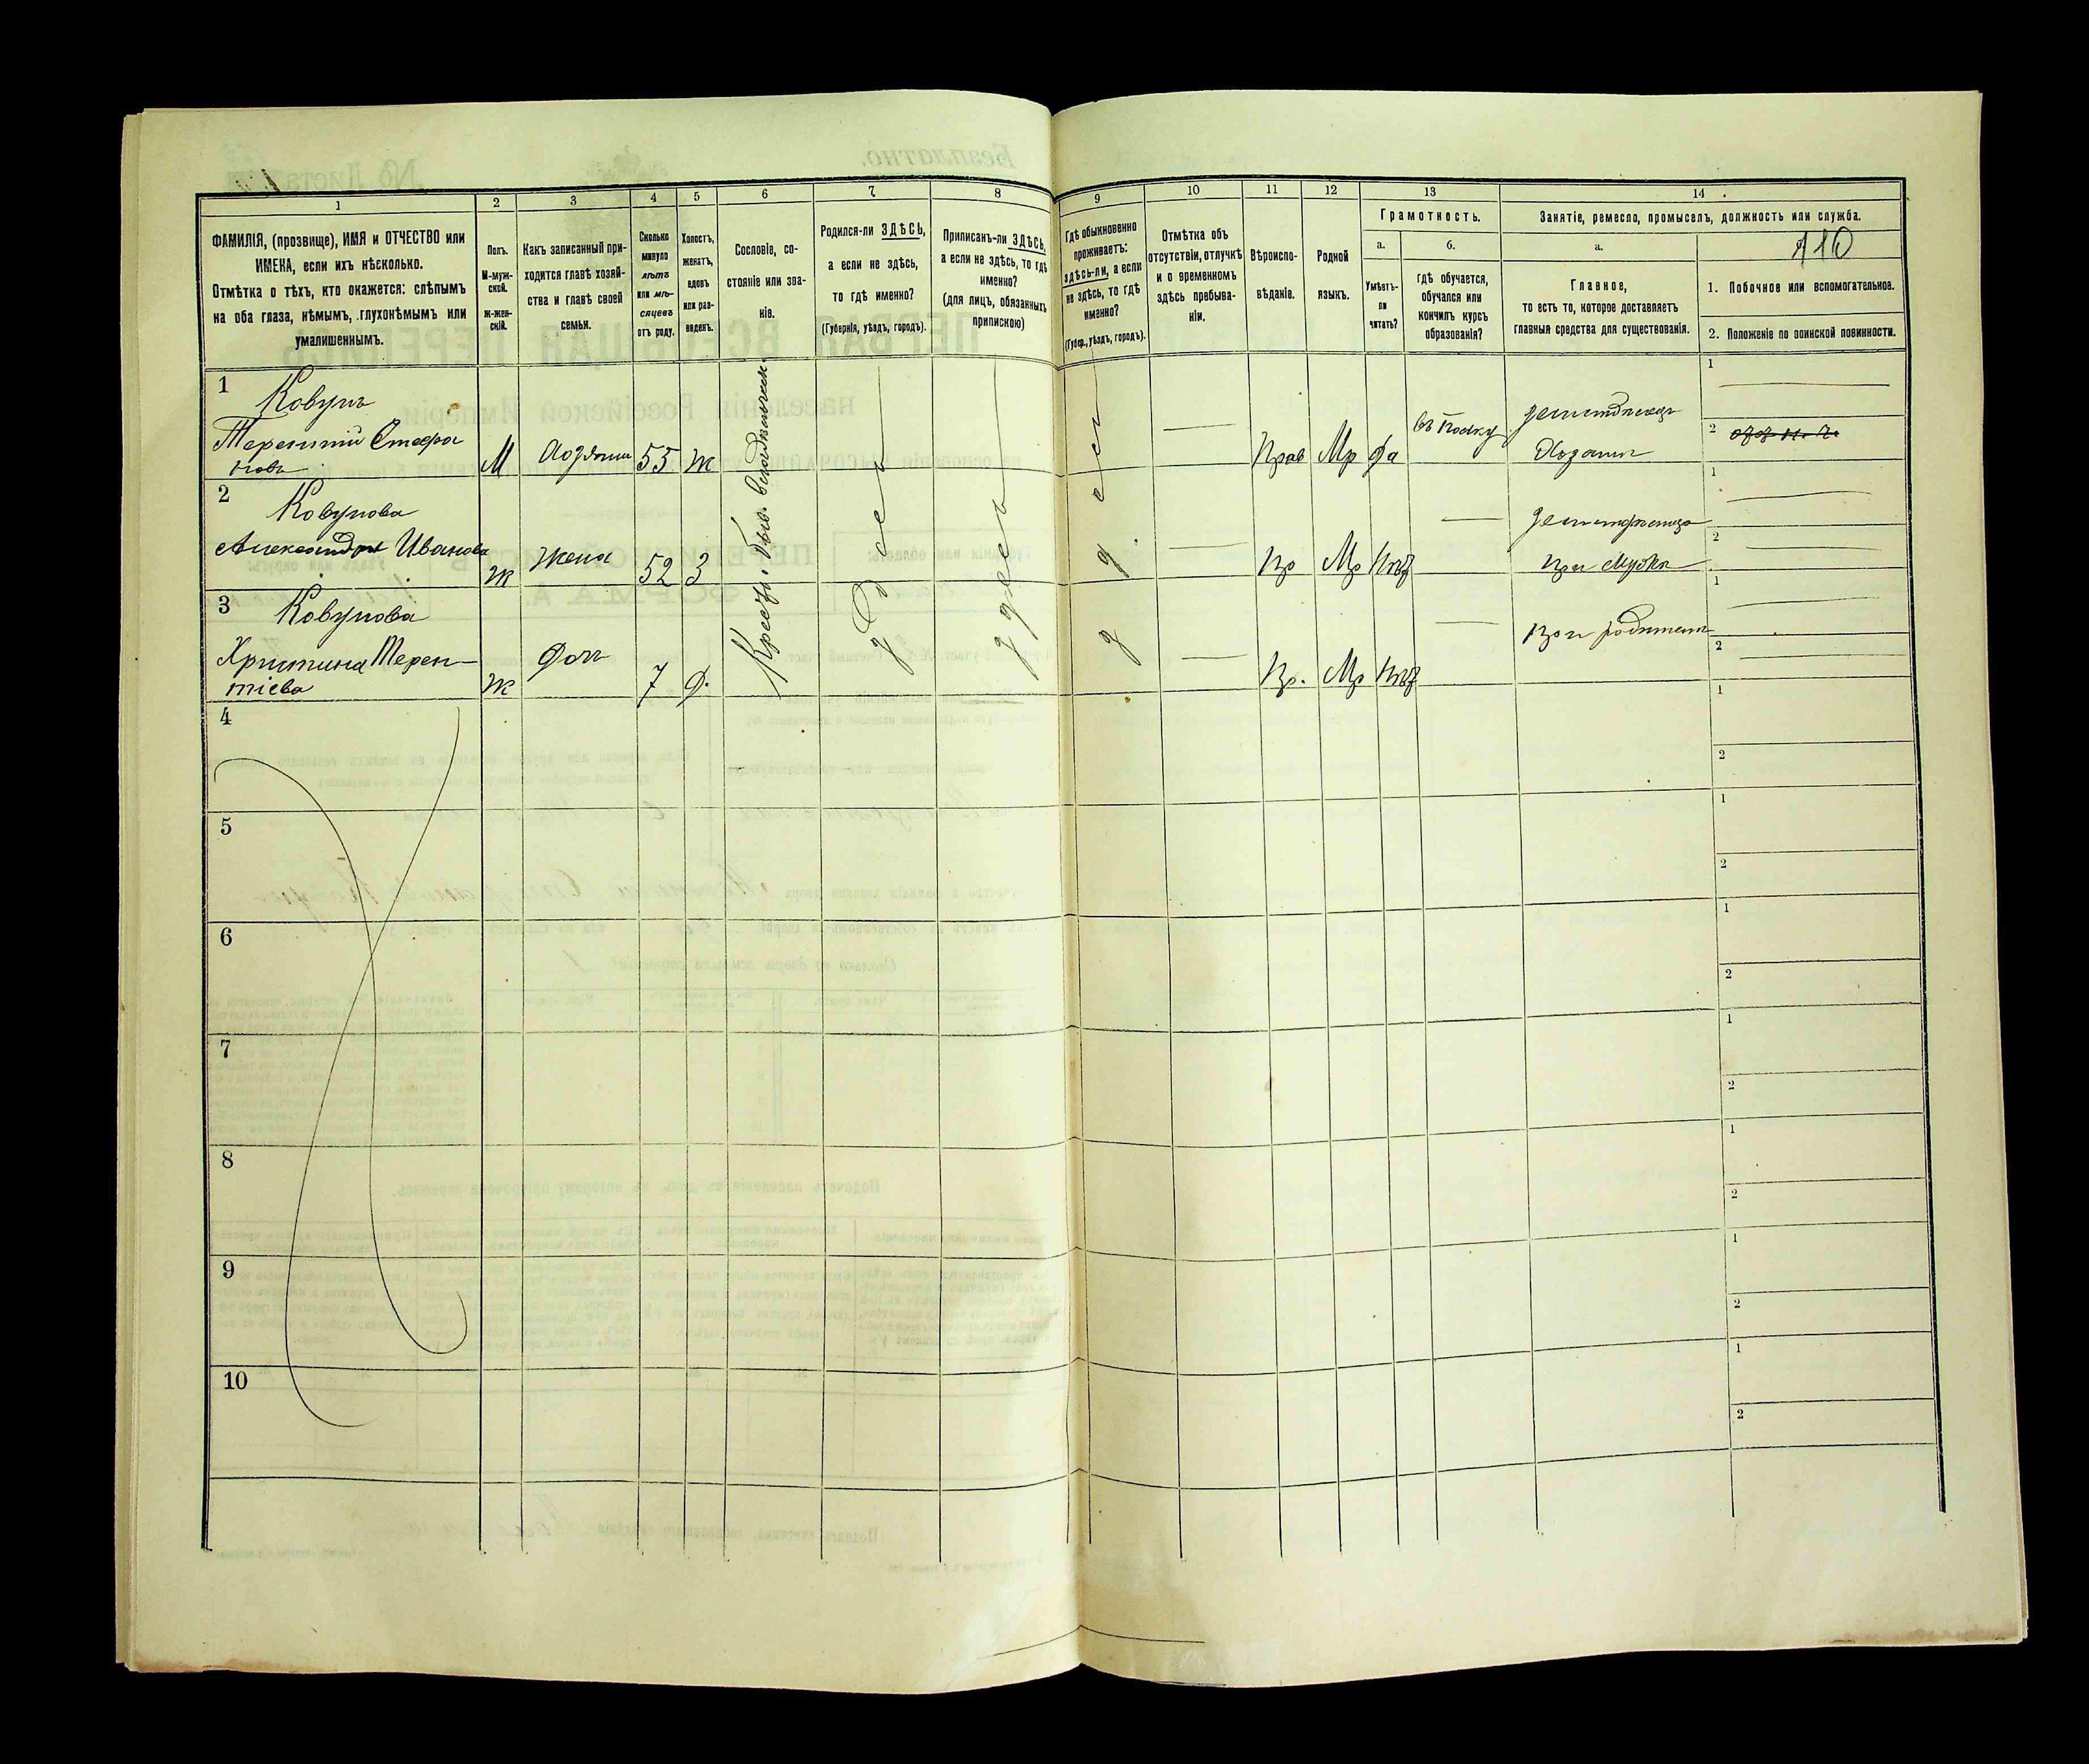 1
2
3
4
5
6
7
8
9
10
11
12
13
14
ФАМИЛІЯ, (прозвище), ИМЯ и ОТЧЕСТВО или
ИМЕНА, если ихъ нѣсколько.
Отмѣтка о тѣхъ, кто окажется: слѣпымъ
на оба глаза, нѣмымъ, глухонѣмымъ или
умалишеннымъ.
Полъ.
М-муж-
ской.
ж-жен-
скій.
Какъ записанный при-
ходится главѣ хозяй-
ства и главѣ своей
семьи.
Сколько
минуло
лѣтъ
или мѣ-
сяцевъ
отъ роду.
Холостъ,
женатъ,
вдовъ
или раз-
веденъ.
Сословіе, со-
стояніе или зва-
ніе.
Родился-ли ЗДѢСЬ,
а если не здѣсь,
то гдѣ именно?
(Губернія, уѣздъ, городъ).
Приписанъ-ли ЗДѢСЬ,
а если не здѣсь, то гдѣ
именно?
(для лицъ, обязанныхъ
припискою)
Гдѣ обыкновенно
проживаетъ:
здѣсь-ли, а если
не здѣсь, то гдѣ
именно?
(Губер., уѣздъ, городъ).
Отмѣтка объ
отсутствіи, отлучкѣ
и о временномъ
здѣсь пребыва-
ніи.
Вѣроиспо-
вѣданіе.
Родной
языкъ.
Грамотность.
а.
Умѣетъ-
ли
читать?
б.
гдѣ обучается,
обучался или
кончилъ курсъ
образованія?
Занятіе, ремесло, промыселъ, должность или служба.
а.
Главное,
то есть то, которое доставляетъ
главныя средства для существованія.
110
1. Побочное или вспомогательное.
2. Положеніе по воинской повинности.
1
Ковунъ
Терентій Стефа
новъ
М
Хозяинъ
55
ж
Прав
Мр
Да
въ полку
земледѣлецъ
Хозяинъ
1
2
2
Ковунова
Александра Иванова
ж
Жена
52
З
Пр
Мр
Нѣт
при мужѣ
1
2
3
Ковунова
Христина Терен-
тіева
ж
Доч
7
Д.
Пр.
Мр
Нѣт
При родителяхъ
1
2
Крест. быв.
здѣсь
4
1
2
5
1
2
6
1
2
7
1
2
8
1
2
9
1
2
10
1
2